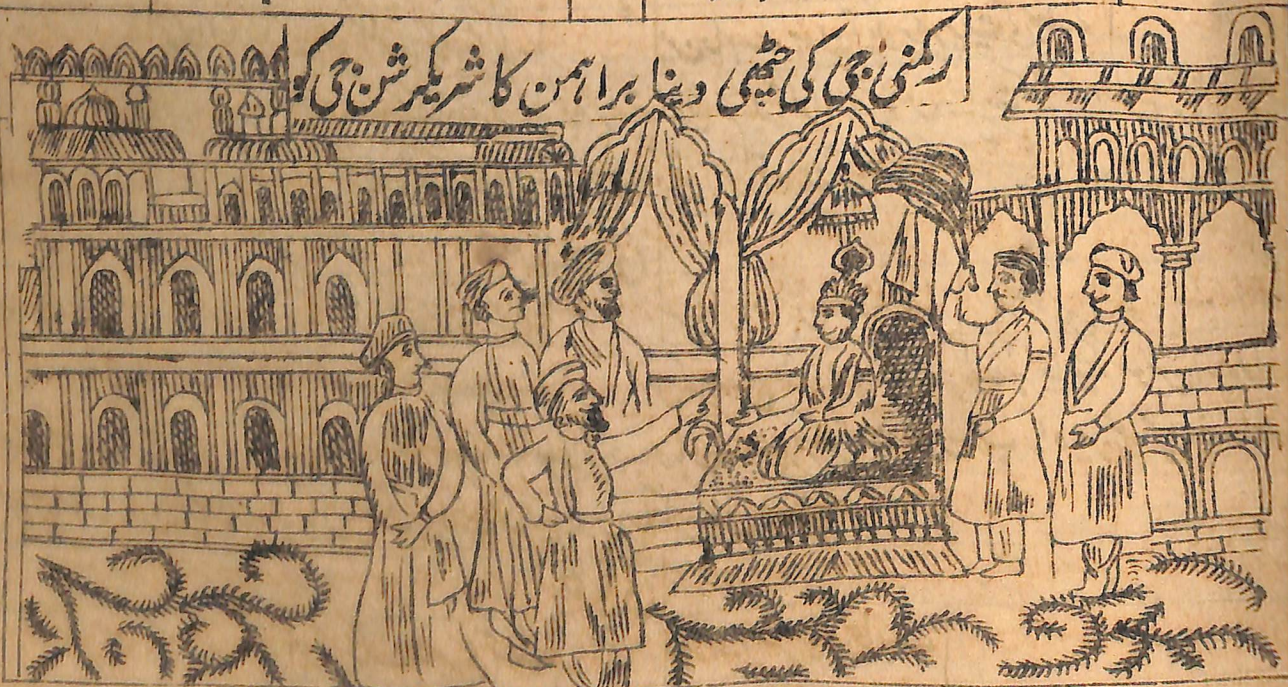 رکمنی جی کی چٹھی دینا براہمن کا شریکرشن جی کو